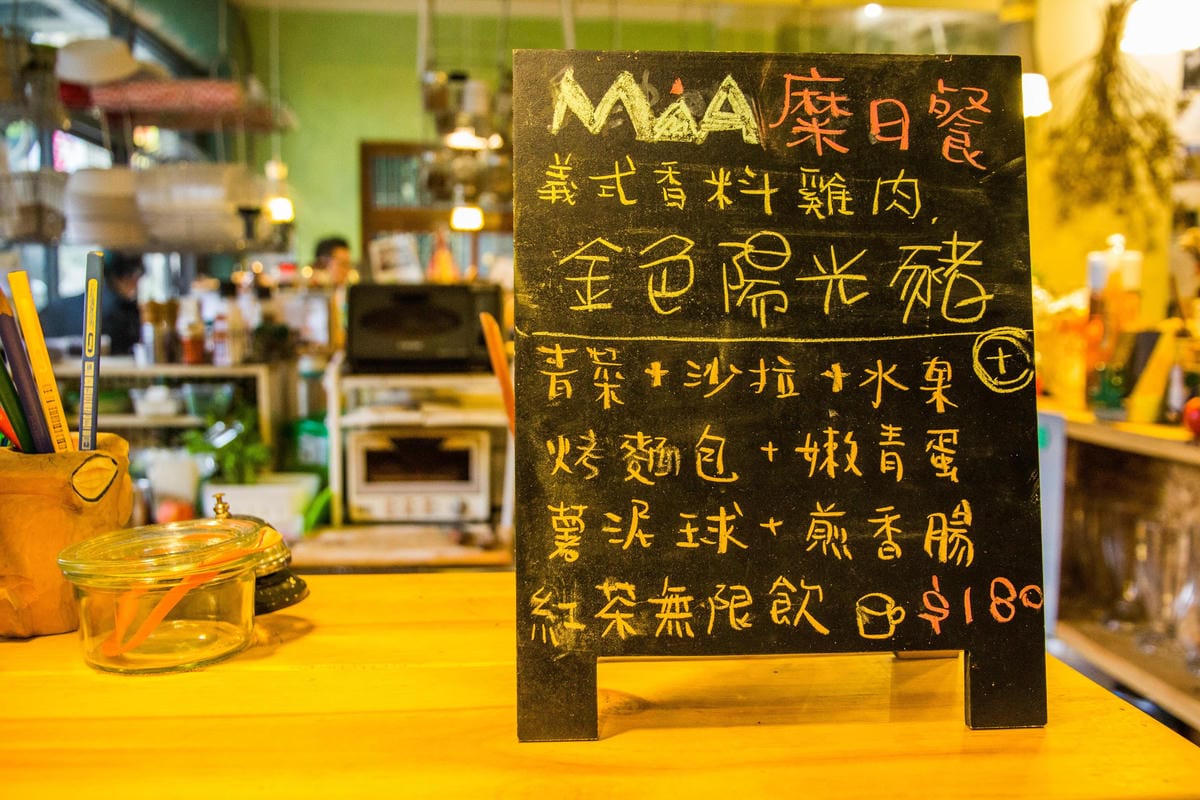 MiA 糜日餐
義式香料雞肉,
金色陽光豬
+
青菜+沙拉+水果
烤麵包+嫩青蛋
薯泥球+煎香腸
紅茶無限飲 $180